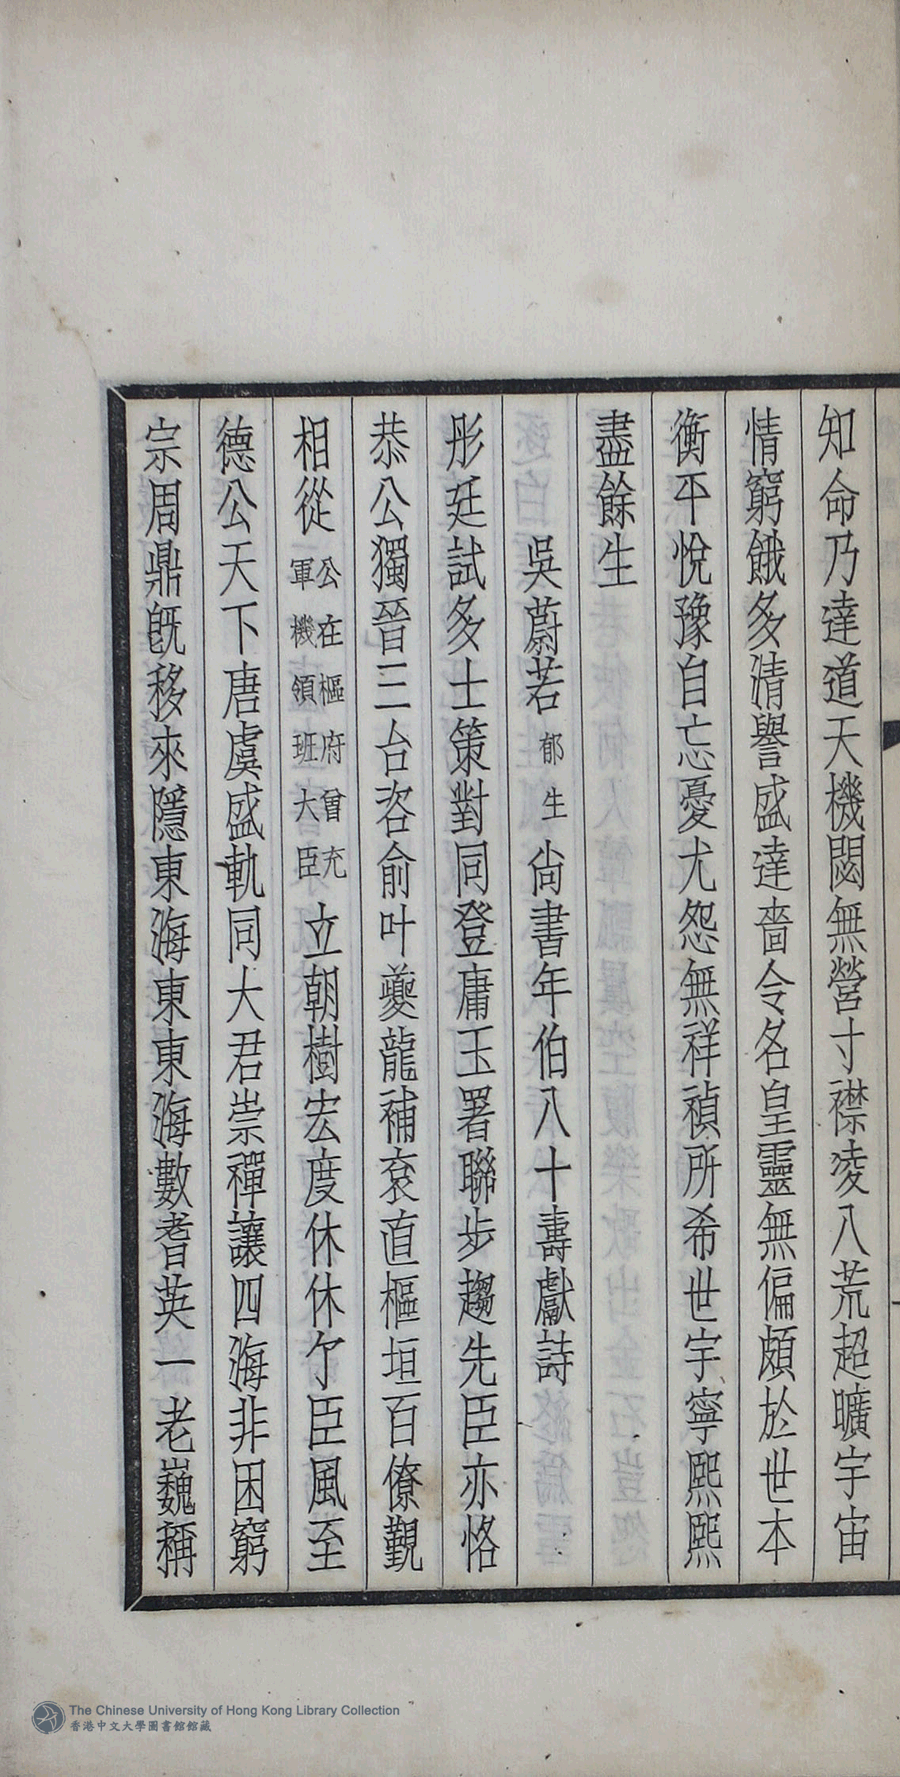 知命乃達道天機閟無營寸襟凌八荒超曠宇宙
情窮餓多清譽盛達嗇令名皇靈無偏頗於世本
衡平悅豫自忘憂尤怨無祥禎所希世宇寧熙熙
盡餘生
吳蔚若郁生尙書年伯八十壽獻詩
彤廷試多士策對同登庸玉署聯步趨先臣亦恪
恭公獨晉三台咨俞叶夔龍補袞直樞垣百僚覲
相從公在樞府曾充軍機領班大臣立朝樹宏度休休个臣風至
德公天下唐虞盛軌同大君崇禪讓四海非困窮
宗周鼎旣移來隱東海東東海數耆英一老巍稱
The Chinese University of Hong Kong Library Collection
香港中文大學圖書館館藏